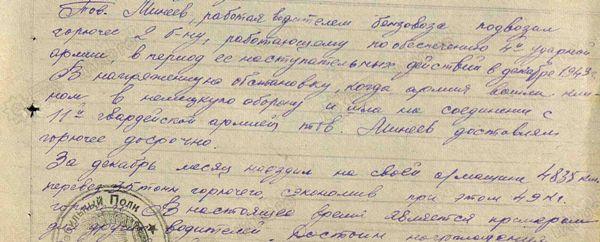 Тов. Минеев, работая водителем бензовоза подвозил
горючее 2 б-ну, работающему по обеспечению 4й ударной
армии, в период ее наступательных действий в декабре 1943г.
В напряженную обстановку, когда армия вошла кли-
ном в немецкую оборону и шла на соединение с
11й гвардейской армией т. Минеев доставлял
горючее досрочно.
За декабрь месяц наездил на своей а/машине 4835 км.
перевез тонн горючего, сэкономив при этом 49 кг.
В настоящее время является примером
для других водителей. Достоин награждения